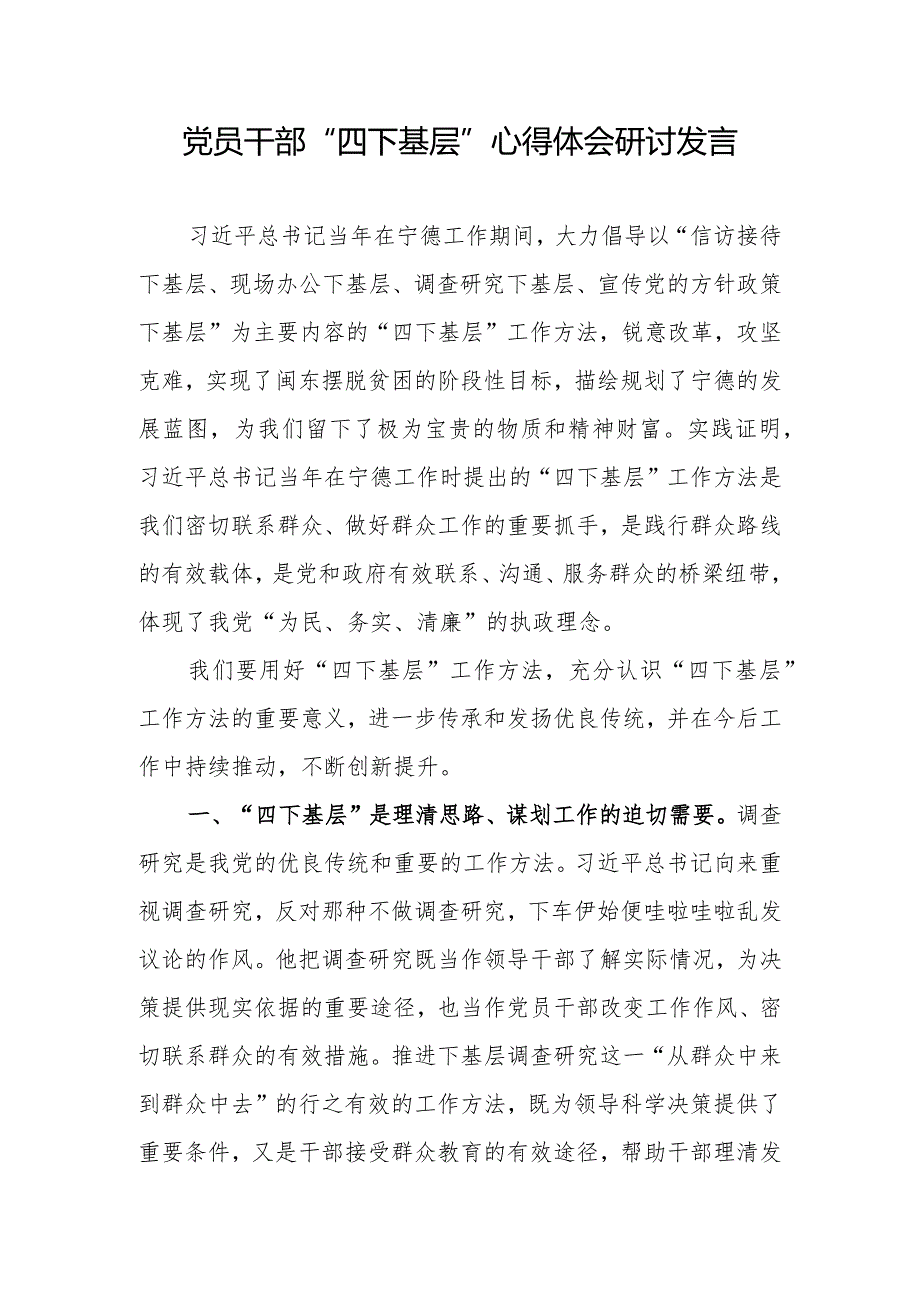 党员干部“四下基层”心得体会研讨发言
习近平总书记当年在宁德工作期间，大力倡导以“信访接待
下基层、现场办公下基层、调查研究下基层、宣传党的方针政策
下基层”为主要内容的“四下基层”工作方法，锐意改革，攻坚
克难，实现了闽东摆脱贫困的阶段性目标，描绘规划了宁德的发
展蓝图，为我们留下了极为宝贵的物质和精神财富。实践证明，
习近平总书记当年在宁德工作时提出的“四下基层”工作方法是
我们密切联系群众、做好群众工作的重要抓手，是践行群众路线
的有效载体，是党和政府有效联系、沟通、服务群众的桥梁纽带，
体现了我党“为民、务实、清廉”的执政理念。
我们要用好“四下基层”工作方法，充分认识“四下基层”
工作方法的重要意义，进一步传承和发扬优良传统，并在今后工
作中持续推动，不断创新提升。
一、“四下基层”是理清思路、谋划工作的迫切需要。调查
研究是我党的优良传统和重要的工作方法。习近平总书记向来重
视调查研究，反对那种不做调查研究，下车伊始便哇啦哇啦乱发
议论的作风。他把调查研究既当作领导干部了解实际情况，为决
策提供现实依据的重要途径，也当作党员干部改变工作作风、密
切联系群众的有效措施。推进下基层调查研究这一“从群众中来
到群众中去”的行之有效的工作方法，既为领导科学决策提供了
重要条件，又是干部接受群众教育的有效途径，帮助干部理清发